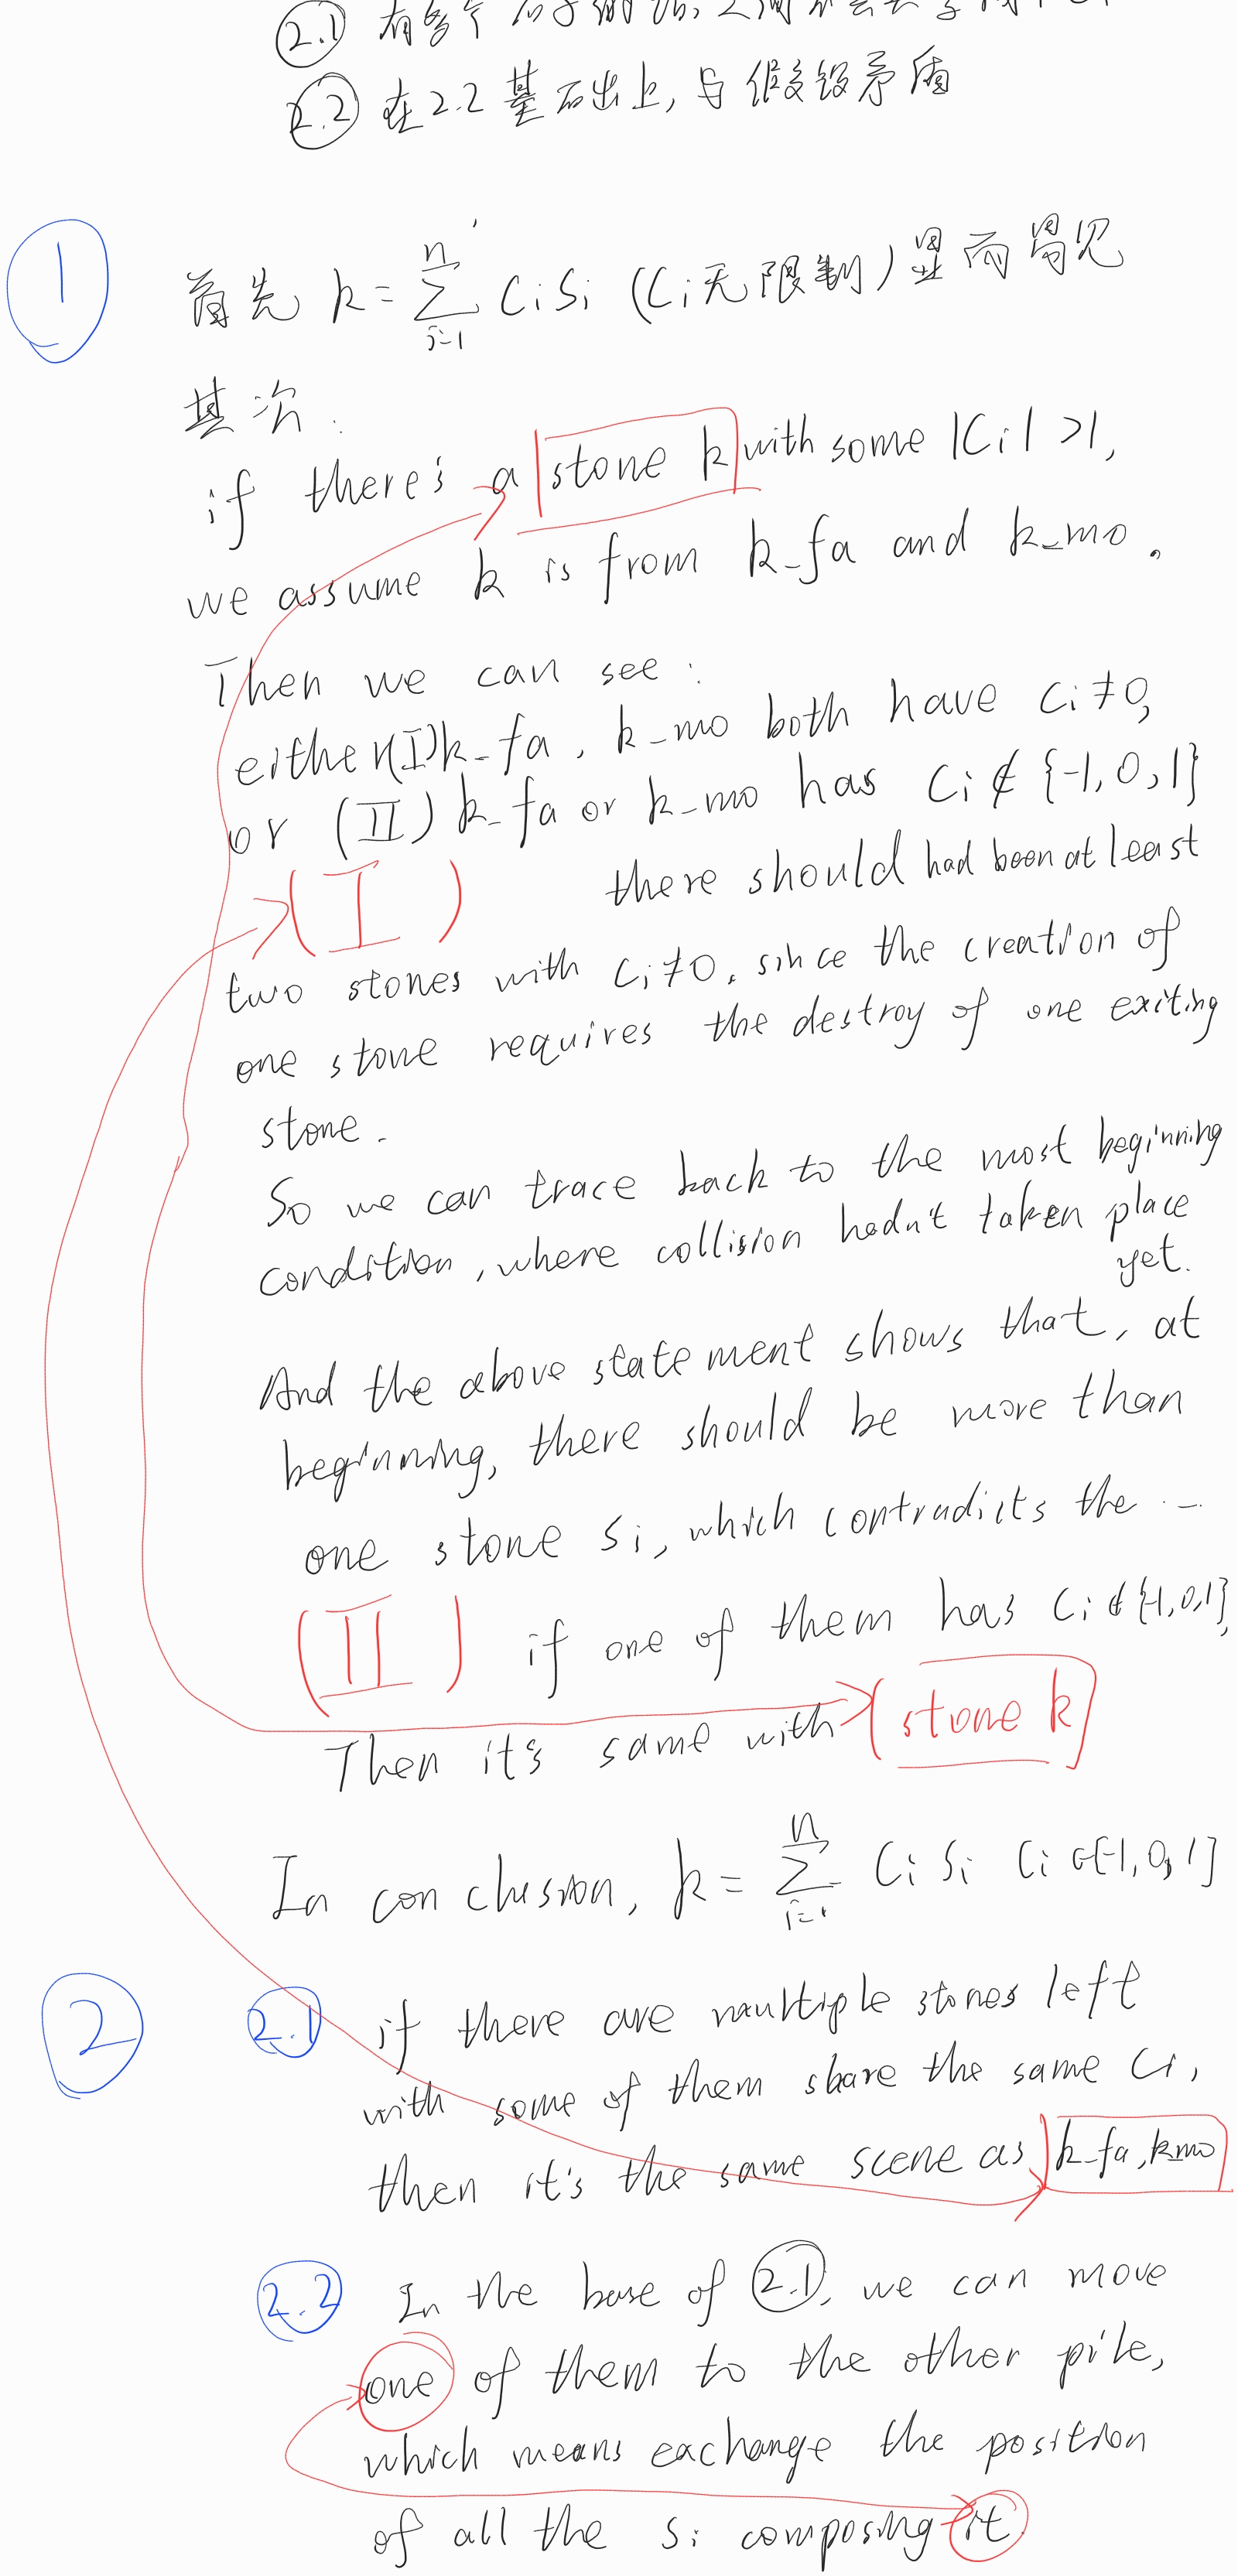 2.1 有多个石子的话,之间不会共享
2.2 在2.2基石出上, 与假设矛盾
1
首先 k = \sum_{i=1}^{n} CiSi (Ci无限制) 显而易见
其次:
if there's a stone k with some |Ci| >1,
we assume k is from k_fa and k_mo.
Then we can see:
either(I)k_fa, k_mo both have Ci≠0,
or (II) k_fa or k_mo has Ci ∉ {-1, 0, 1}
(I) there should had been at least
two stones with Ci≠0, since the creation of
one stone requires the destroy of one exiting
stone.
So we can trace back to the most beginning
condition, where collision hadn't taken place
yet.
And the above statement shows that, at
beginning, there should be more than
one stone Si, which contradicts the ...
(II) if one of them has Ci ∉ {-1,0,1},
Then it's same with stone k
In conclusion, k = \sum_{i=1}^{n} Ci Si Ci ∈{-1, 0, 1}
2 2.1 if there are multiple stones left
with some of them share the same Ci,
then it's the same scene as k_fa, k_mo
2.2 In the base of 2.1, we can move
one of them to the other pile,
which means exchange the position
of all the Si composing it